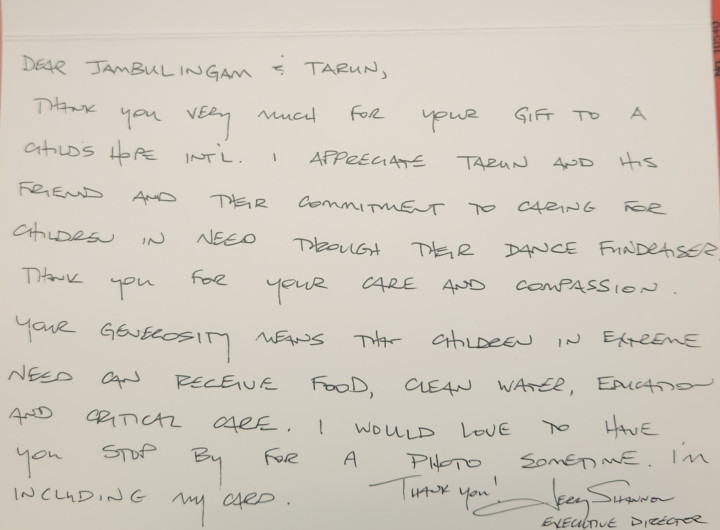 DEAR JAMBULINGAM & TARUN,
THANK YOU VERY MUCH FOR YOUR GIFT TO A
CHILD'S HOPE INT'L. I APPRECIATE TARUN AND HIS
FRIEND AND THEIR COMMITMENT TO CARING FOR
CHILDREN IN NEED THROUGH THEIR DANCE FUNDRAISER.
THANK YOU FOR YOUR CARE AND COMPASSION.
YOUR GENEROSITY MEANS THAT CHILDREN IN EXTREME
NEED CAN RECEIVE FOOD, CLEAN WATER, EDUCATION
AND CRITICAL CARE. I WOULD LOVE TO HAVE
YOU STOP BY FOR A PHOTO SOMETIME. I'M
INCLUDING MY CARD. THANK YOU!
SHANNON
EXECUTIVE DIRECTOR